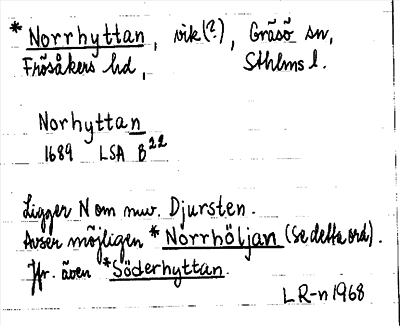 * Norrhyttan, vik (?), Gräsö sn,
Frösåkers hd, Sthlms l.
Norhyttan
1689 LSA B22
Ligger N om nuv. Djursten.
Avser möjligen * Norrhöljan (se detta ord).
Jfr. även * Söderhyttan.
LR-n 1968